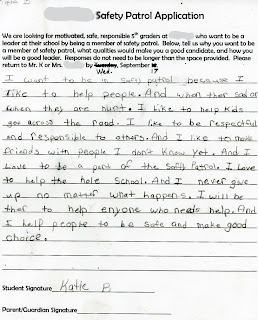 Safety Patrol Application
We are looking for motivated, safe, responsible 5th graders at who want to be a
leader at their school by being a member of safety patrol. Below, tell us why you want to be
a member of safety patrol, what qualities would make you a good candidate, and how you
will be a good leader. Responses do not need to be longer than the space provided. Please
return to Mr. K or Mrs. by September
Wed. 17
I want to be in safty patrol because I
like to help people. And when ther sad or
when they are hurt. I like to help kids
go across the road. I like to be respectful
and responsible to others. And I like to make
friends with people I don't know yet. And I
Love to be a part of the safty Patrol. I Love
to help the hole School. And I never give
up no matter what happens. I will be
ther to help enyone who needs help. And
I help people to be safe and make good
choice.
Student Signature Katie B
Parent/Guardian Signature